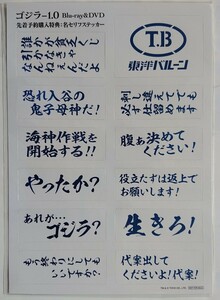 ゴジラ-1.0 Blu-ray&DVD
先着予約購入特典：名セリフステッカー
誰かが貧乏くじ
引かなきゃ
なんねぇんだよ
T.B
東洋バルーン
恐れ入谷の
鬼子母神だ!
刺し違えてでも
必ず仕留めます
海神作戦を
開始する!!
腹ぁ決めて
ください!
やったか?
役立たずは返上で
お願いします!
あれが…
ゴジラ?
生きろ!
もう終わりにしても
いいですか?
代案出して
くださいよ!代案!